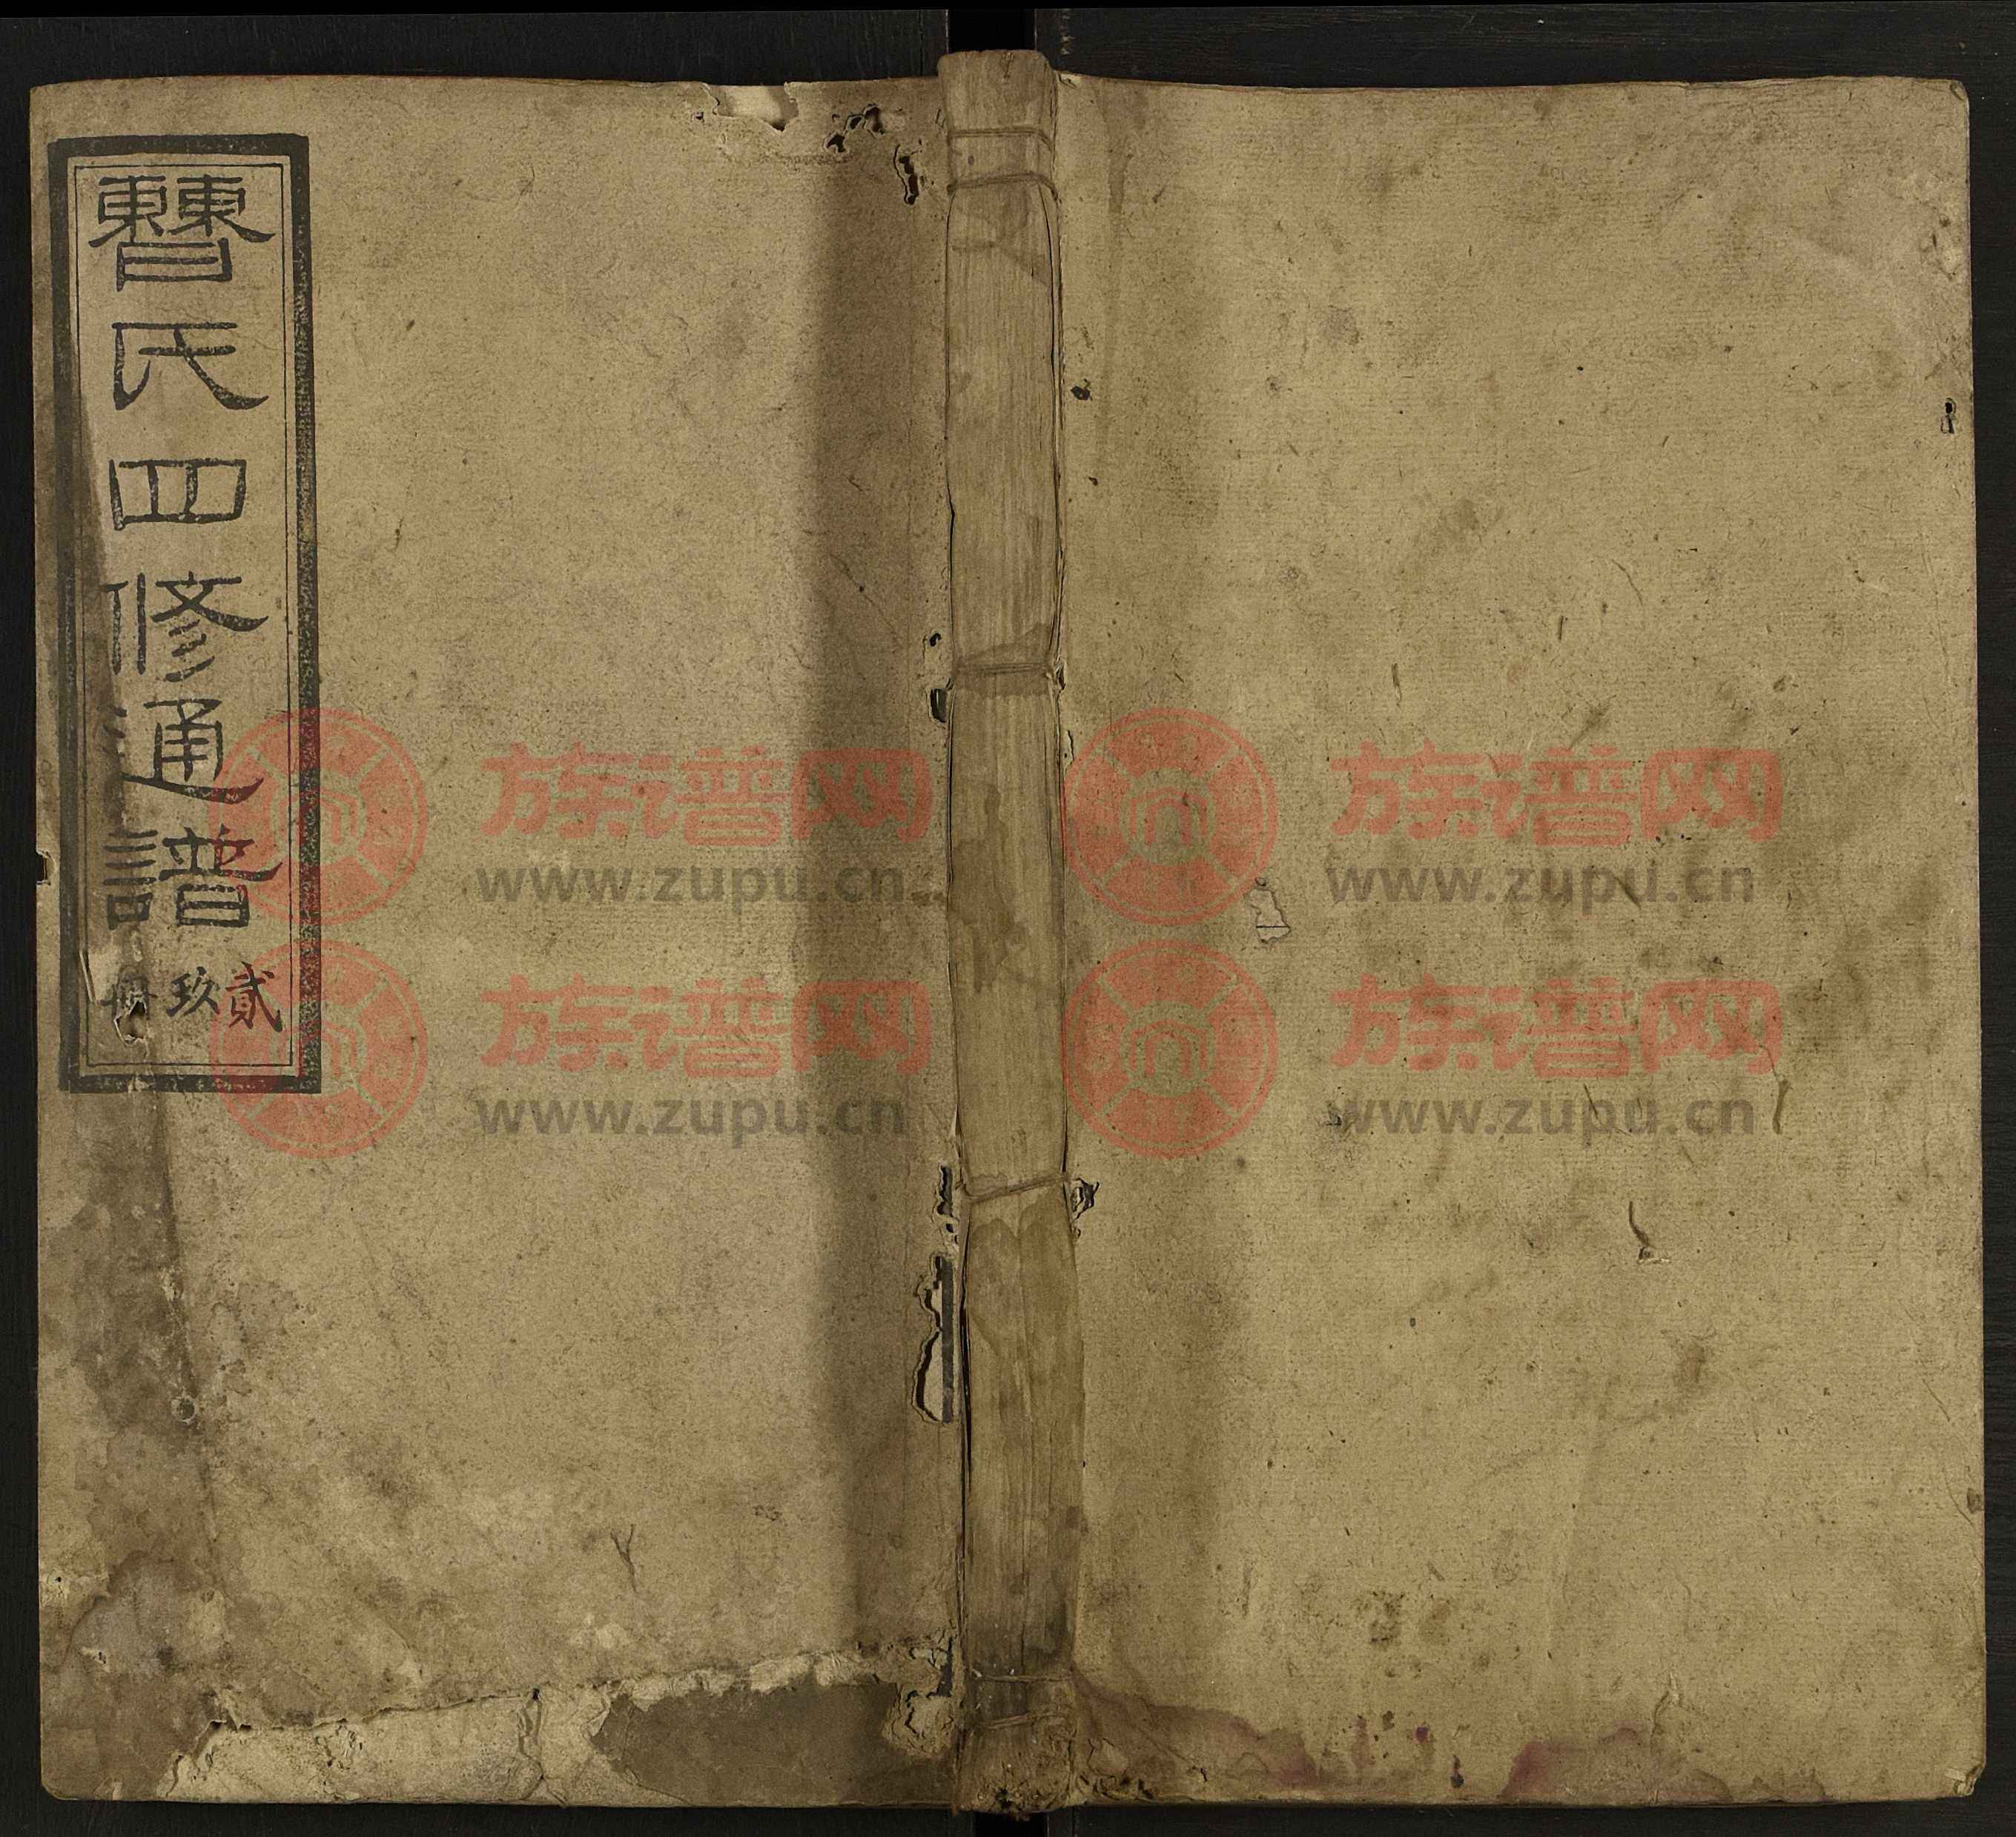 㯥氏四修通譜
貳玖冊
族谱网
www.zupu.cn
族谱网
www.zupu.cn
族谱网
www.zupu.cn
族谱网
www.zupu.cn